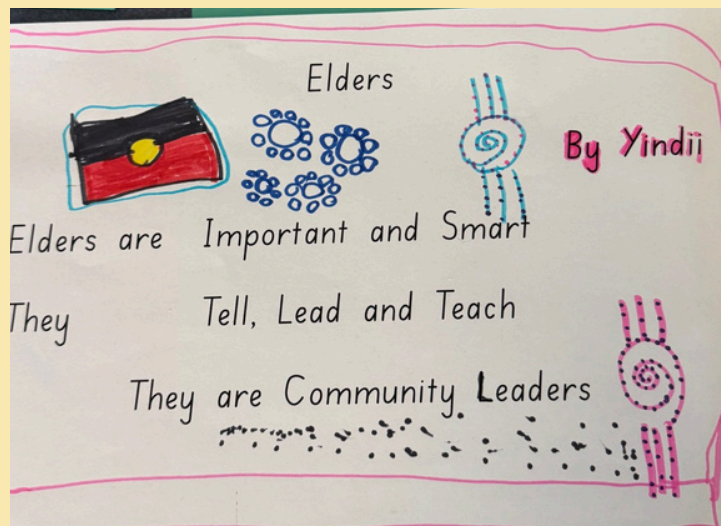 Elders
By Yindii
Elders are Important and Smart
They Tell, Lead and Teach
They are Community Leaders